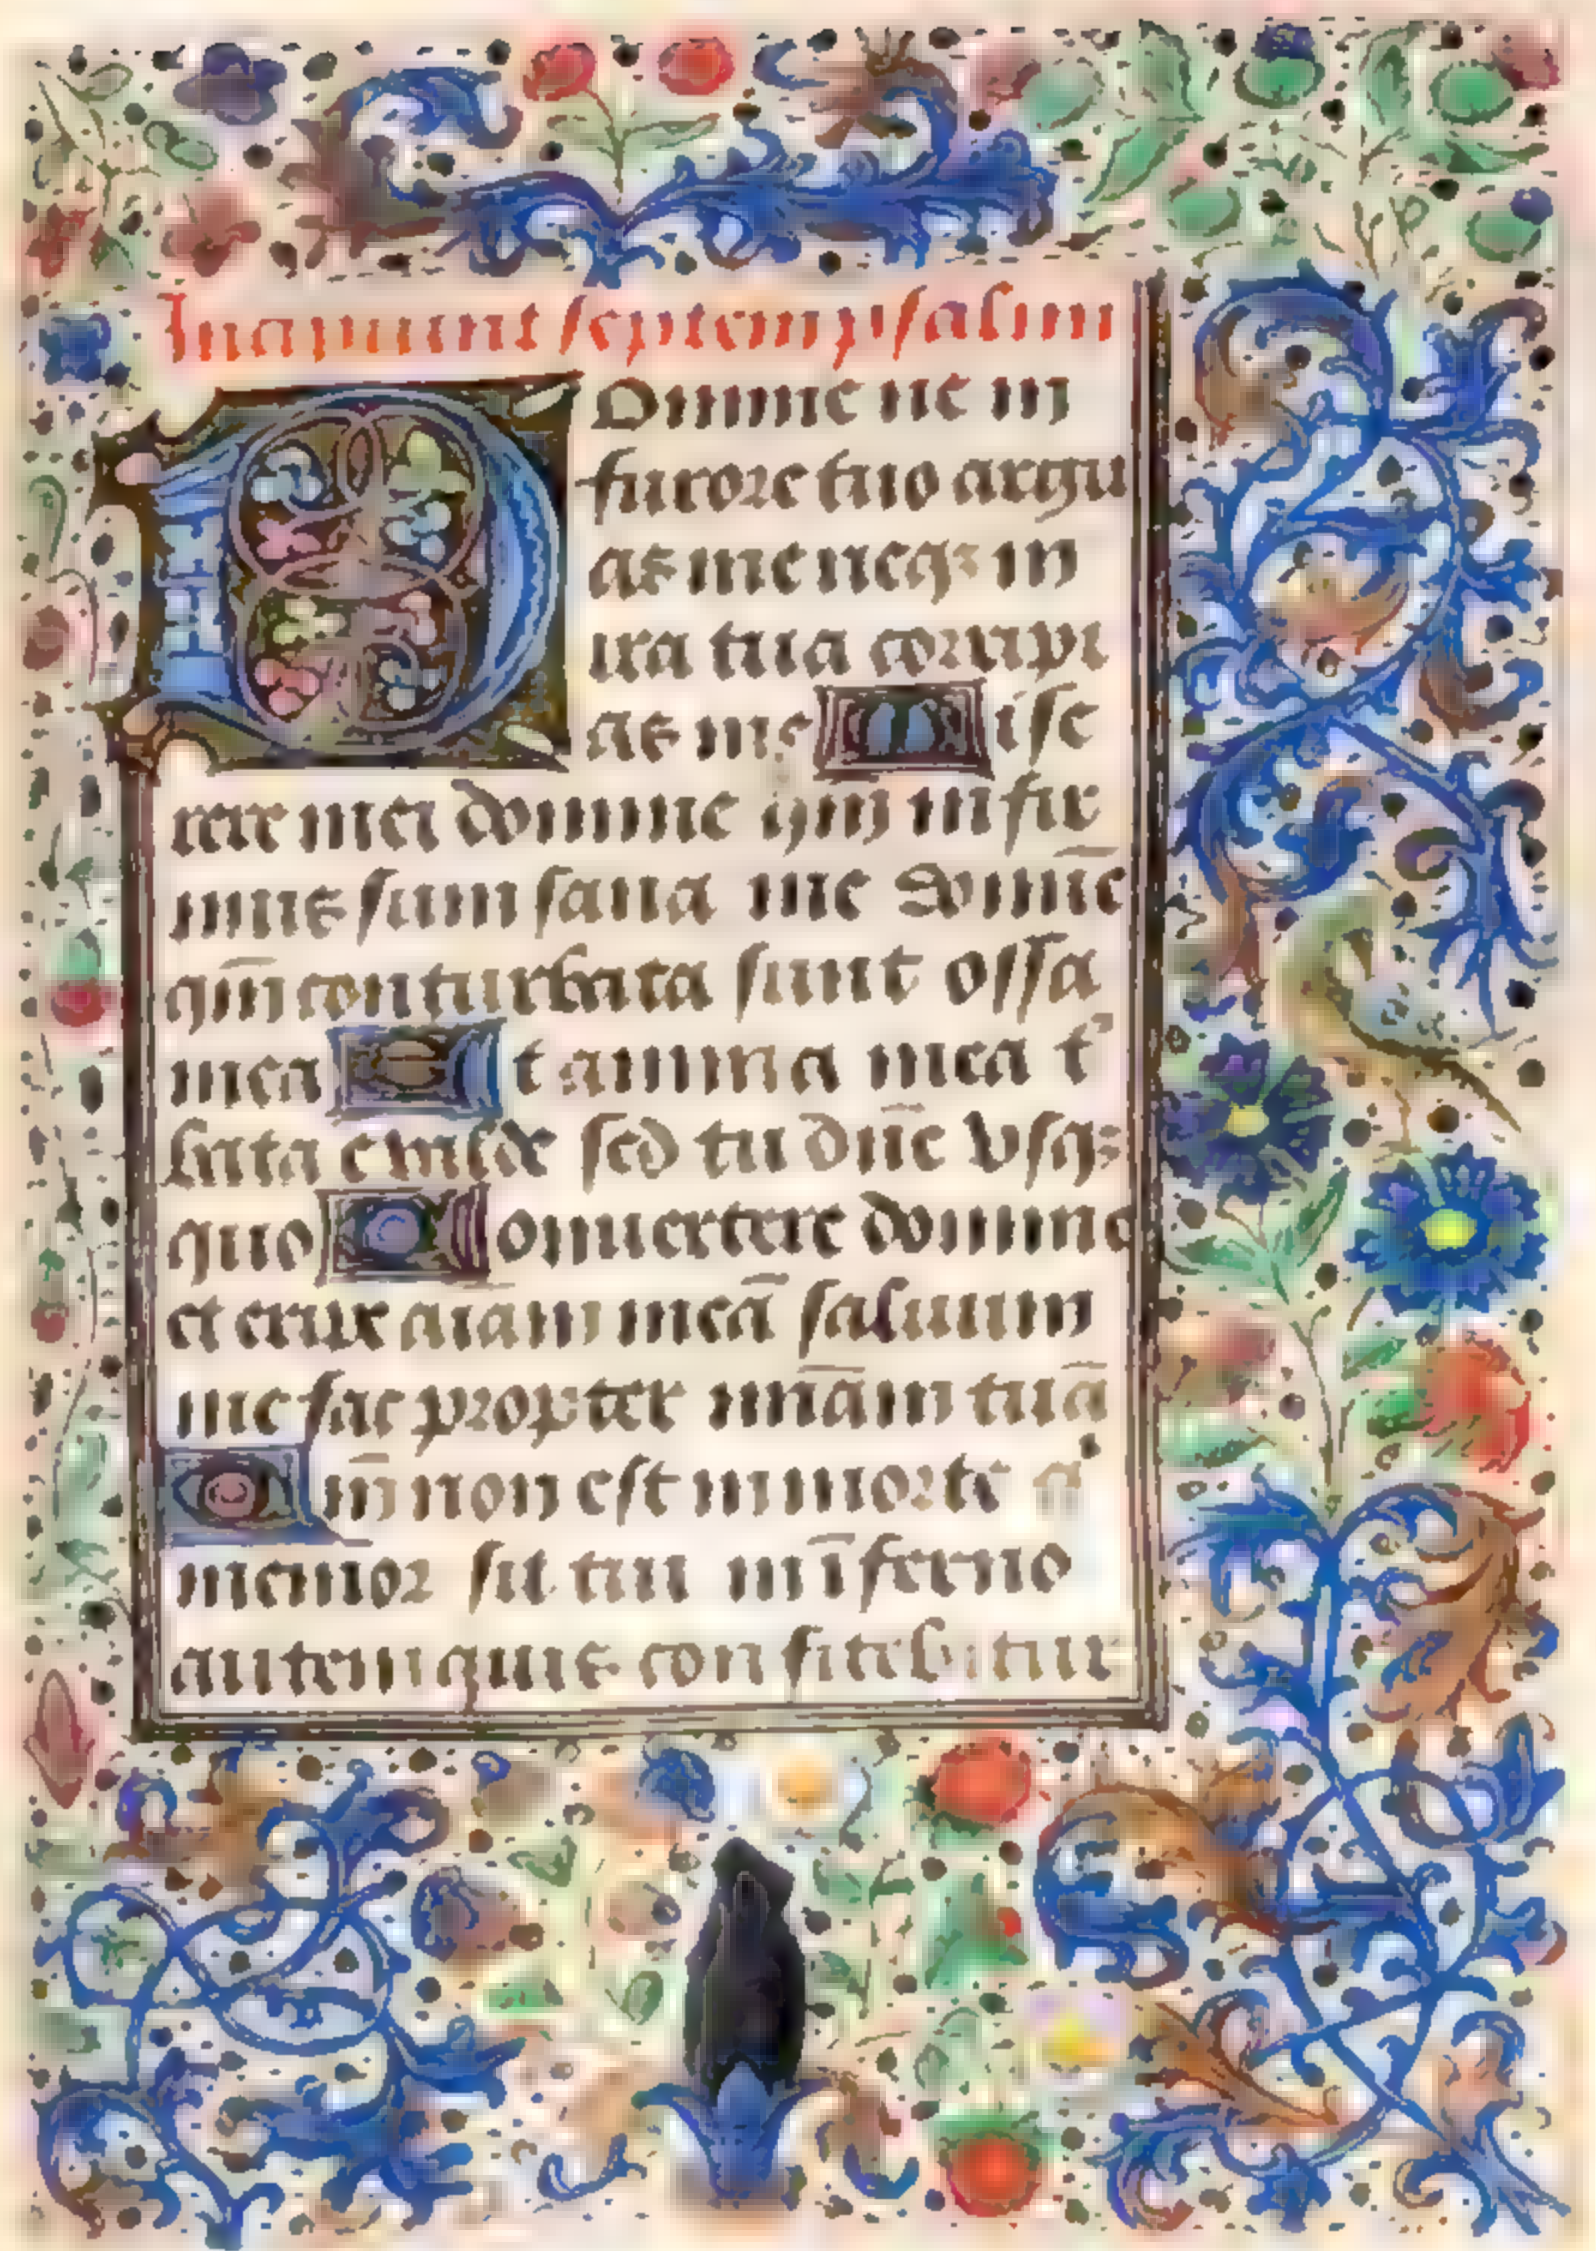 Incipiunt septem psalmi
Domine ne in
furore tuo argu
as me neq₃ in
ira tua corripi
as me Mise
rere mei domine qm̄ infir
mus sum sana me domīe
qm̄ conturbata sunt ossa
mea Et anima mea t᷑
bata e valde sed tu dn̄e vsq₃
quo Conuertere domine
et eripe aīam meā saluum
me fac propter mīam tuā
Qm̄ non est in morte q
memor sit tui in īferno
autem quis confitebitur